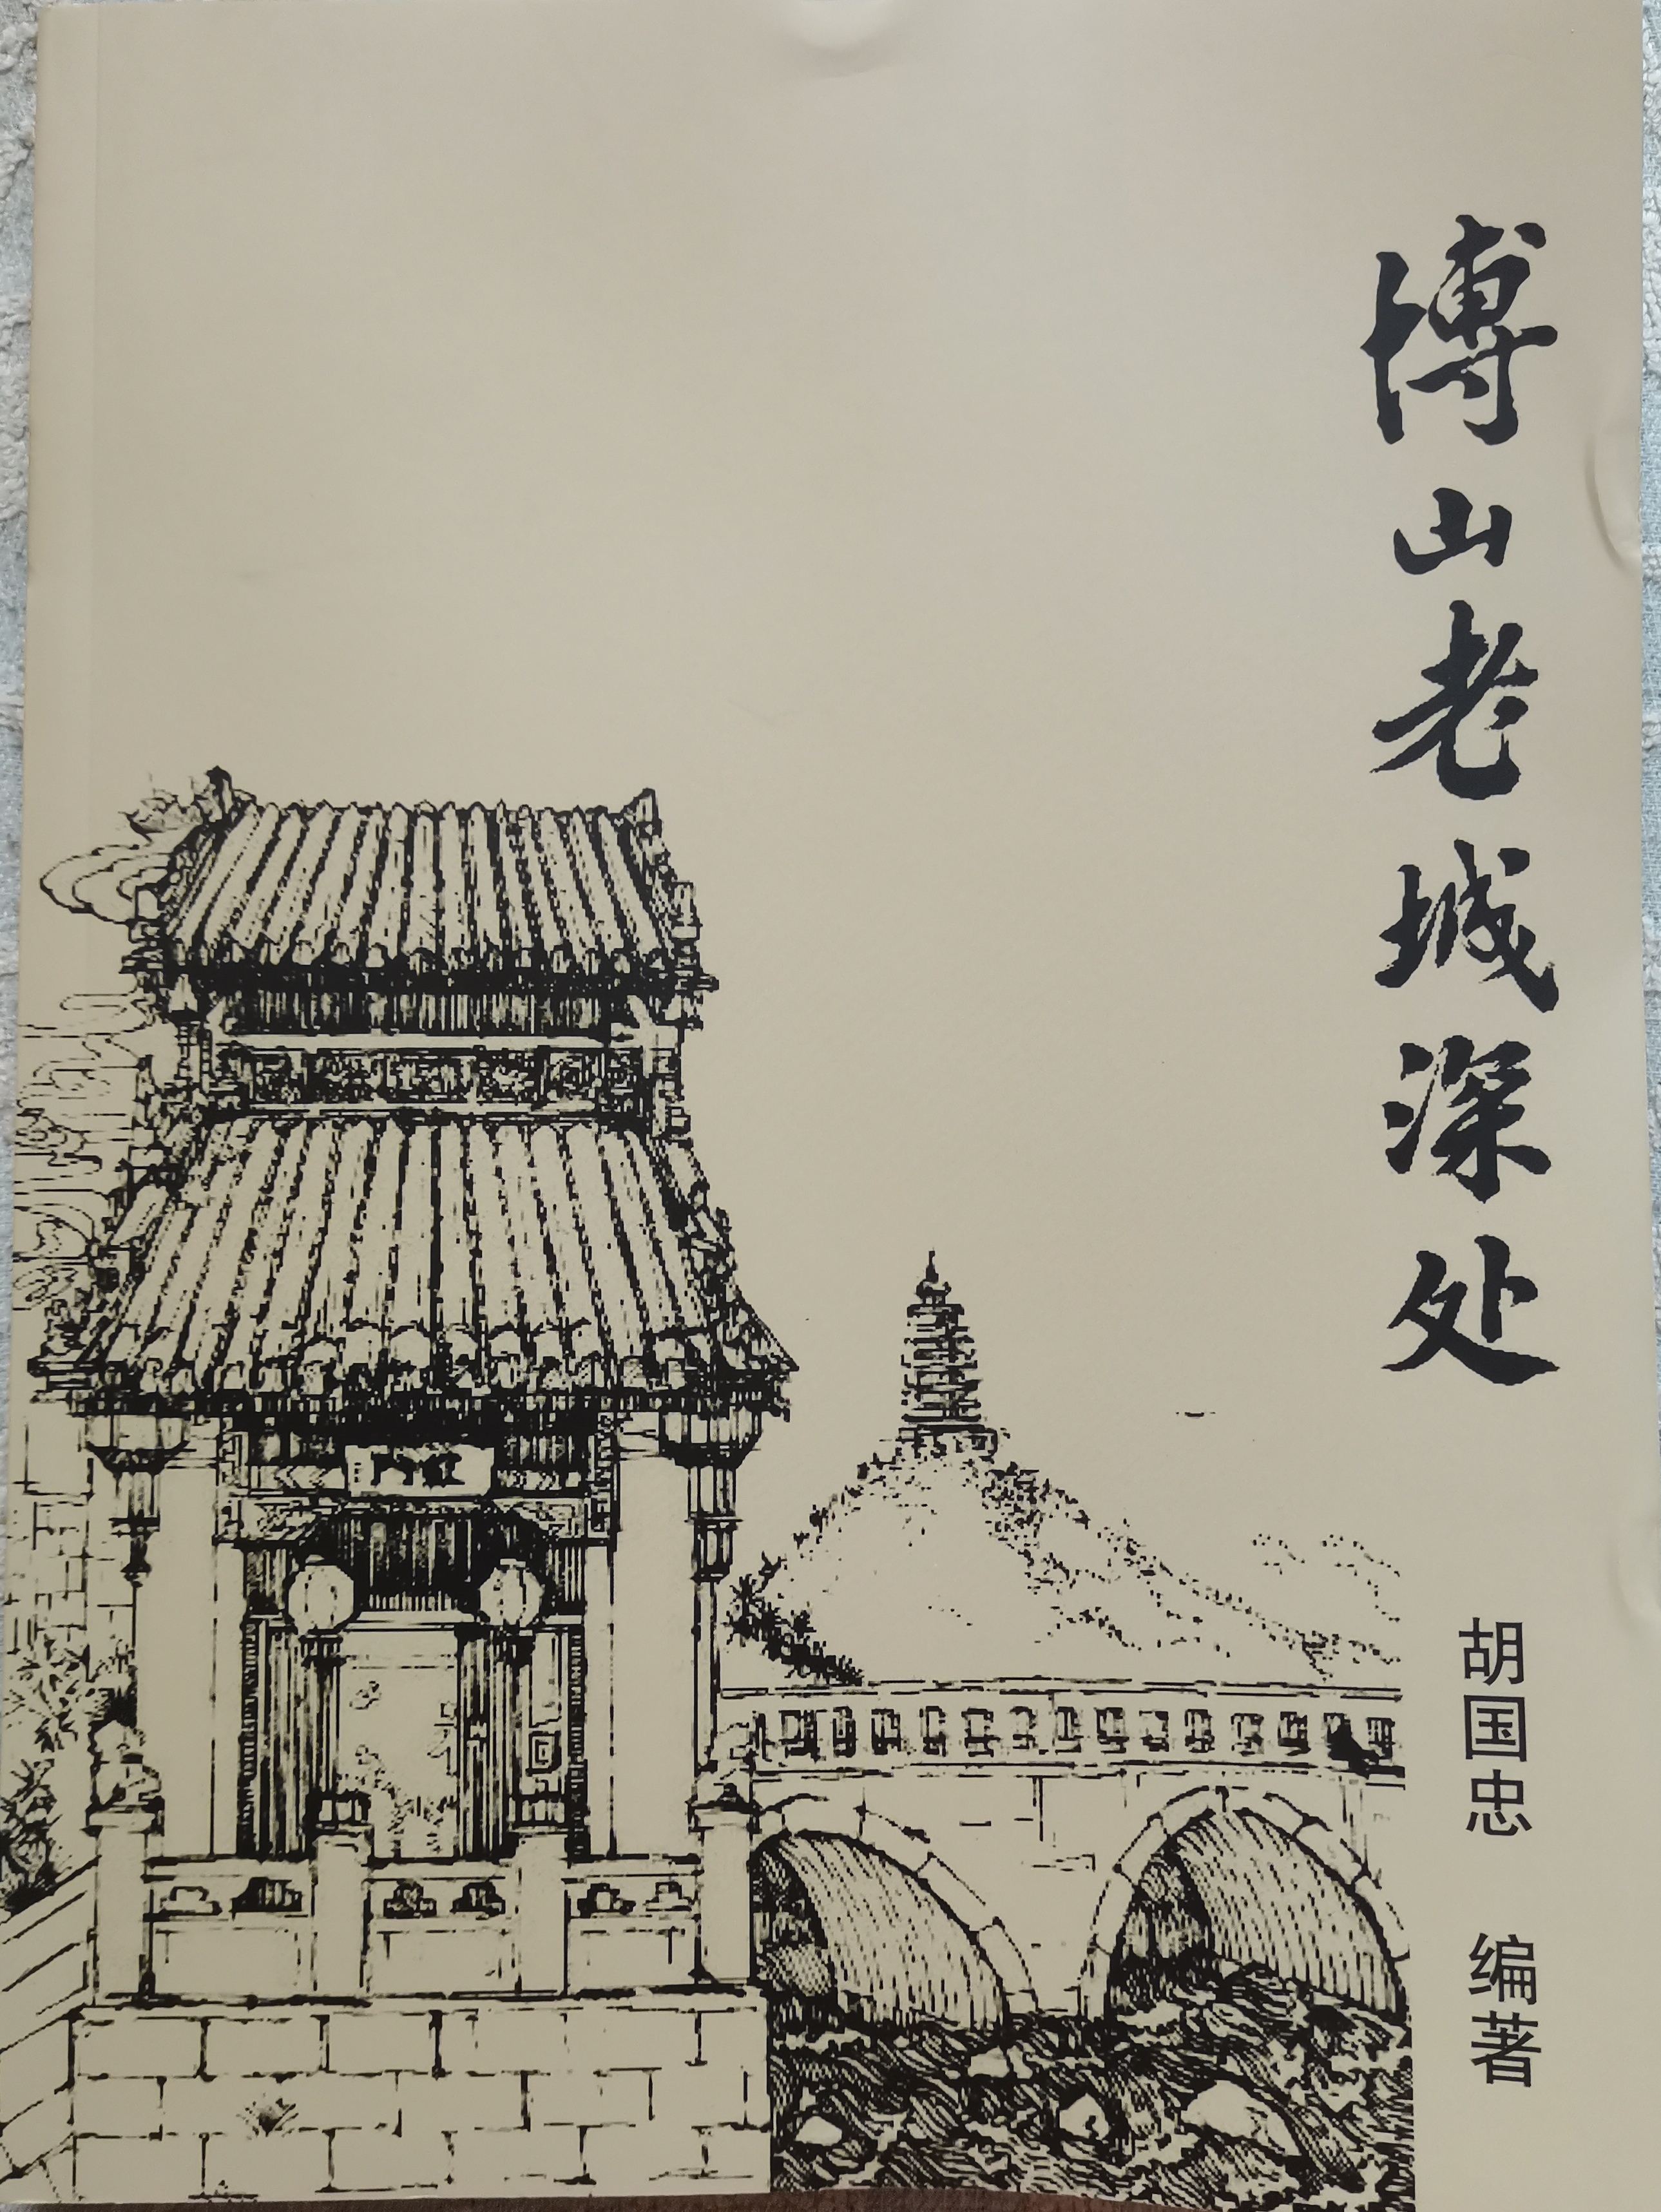 博山老城深处
胡国忠 编著